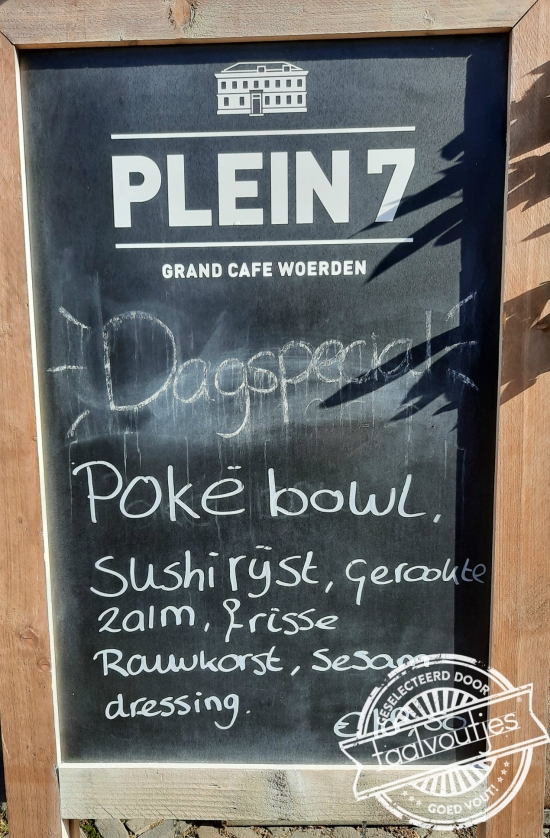 PLEIN 7
GRAND CAFE WOERDEN
Dagspecial
Pokë bowl,
Sushi rijst, gerookte
zalm, frisse
Rauwkorst, Sesam
dressing.
GESELECTEERD DOOR
taalvoutjes
GOED VOUT!